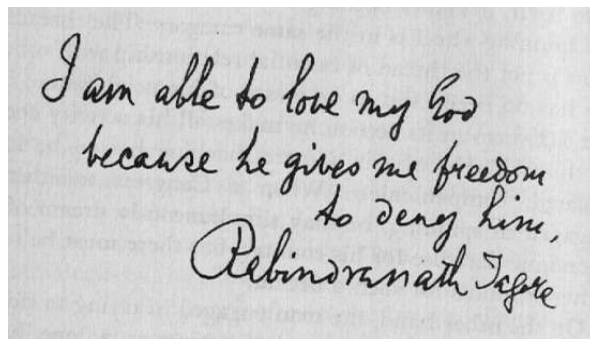 I am able to love my God
because he gives me freedom
to deny him.
Rabindranath Tagore